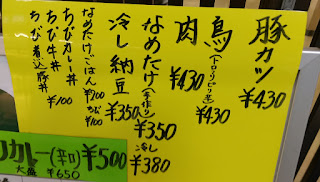 豚カツ
¥430
鳥(トリハゴリ産)
¥430
肉
¥430
なめたけ(手作り)
¥350
冷し
¥380
冷し納豆
¥350
なめたけごはん
¥200
ちび
¥100
ちびカレー丼
ちび牛丼
¥100
ちび煮込豚丼
カレー(辛口)¥500
大盛 ¥650